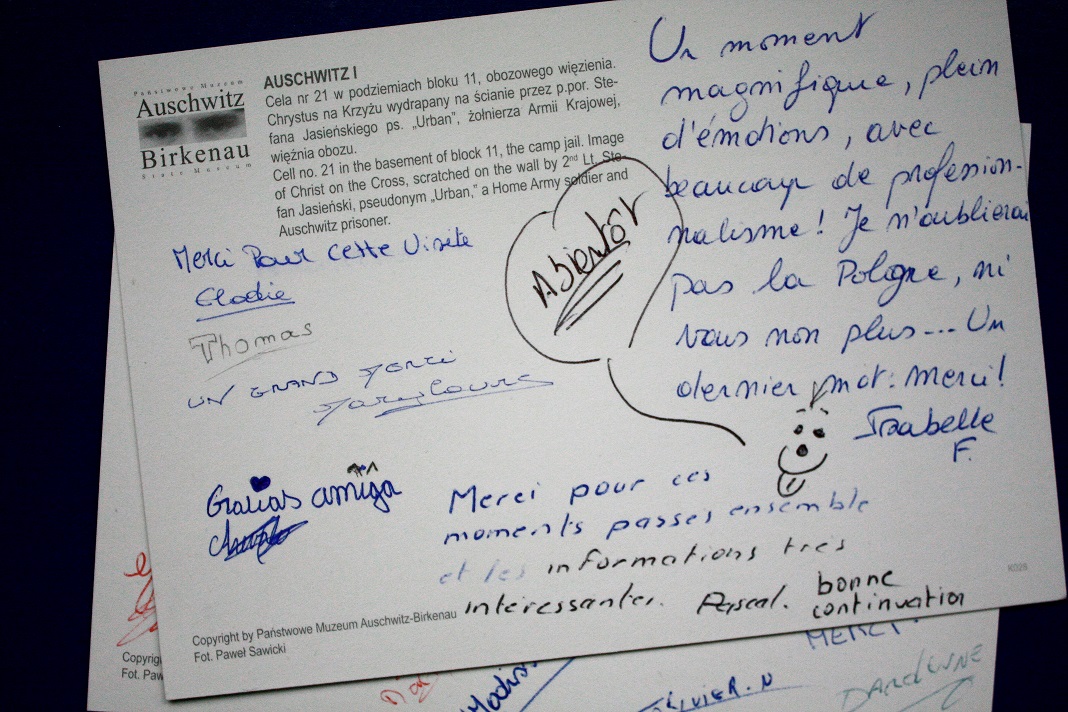 Państwowe Muzeum
Auschwitz
Birkenau
State Museum
AUSCHWITZ I
Cela nr 21 w podziemiach bloku 11, obozowego więzienia.
Chrystus na Krzyżu wydrapany na ścianie przez p.por. Ste-
fana Jasieńskiego ps. „Urban”, żołnierza Armii Krajowej,
więźnia obozu.
Cell no. 21 in the basement of block 11, the camp jail. Image
of Christ on the Cross, scratched on the wall by 2nd Lt. Ste-
fan Jasieński, pseudonym „Urban,” a Home Army soldier and
Auschwitz prisoner.
Un moment
magnifique, plein
d'émotions, avec
beaucoup de profession-
nalisme! Je n'oublierai
pas la Pologne, ni
vous non plus... Un
dernier mot: merci!
Isabelle
F.
Abientôt
Merci Pour cette Visite
Elodie
Thomas
UN GRAND MERCI
Gracias amiga
Merci pour ces
moments passes ensemble
et les informations très
interessantes. Pascal. bonne
continuation
K026
Copyright by Państwowe Muzeum Auschwitz-Birkenau
Fot. Paweł Sawicki
Copyrig
Fot. Paw
MERCI!
OLIVIER.N